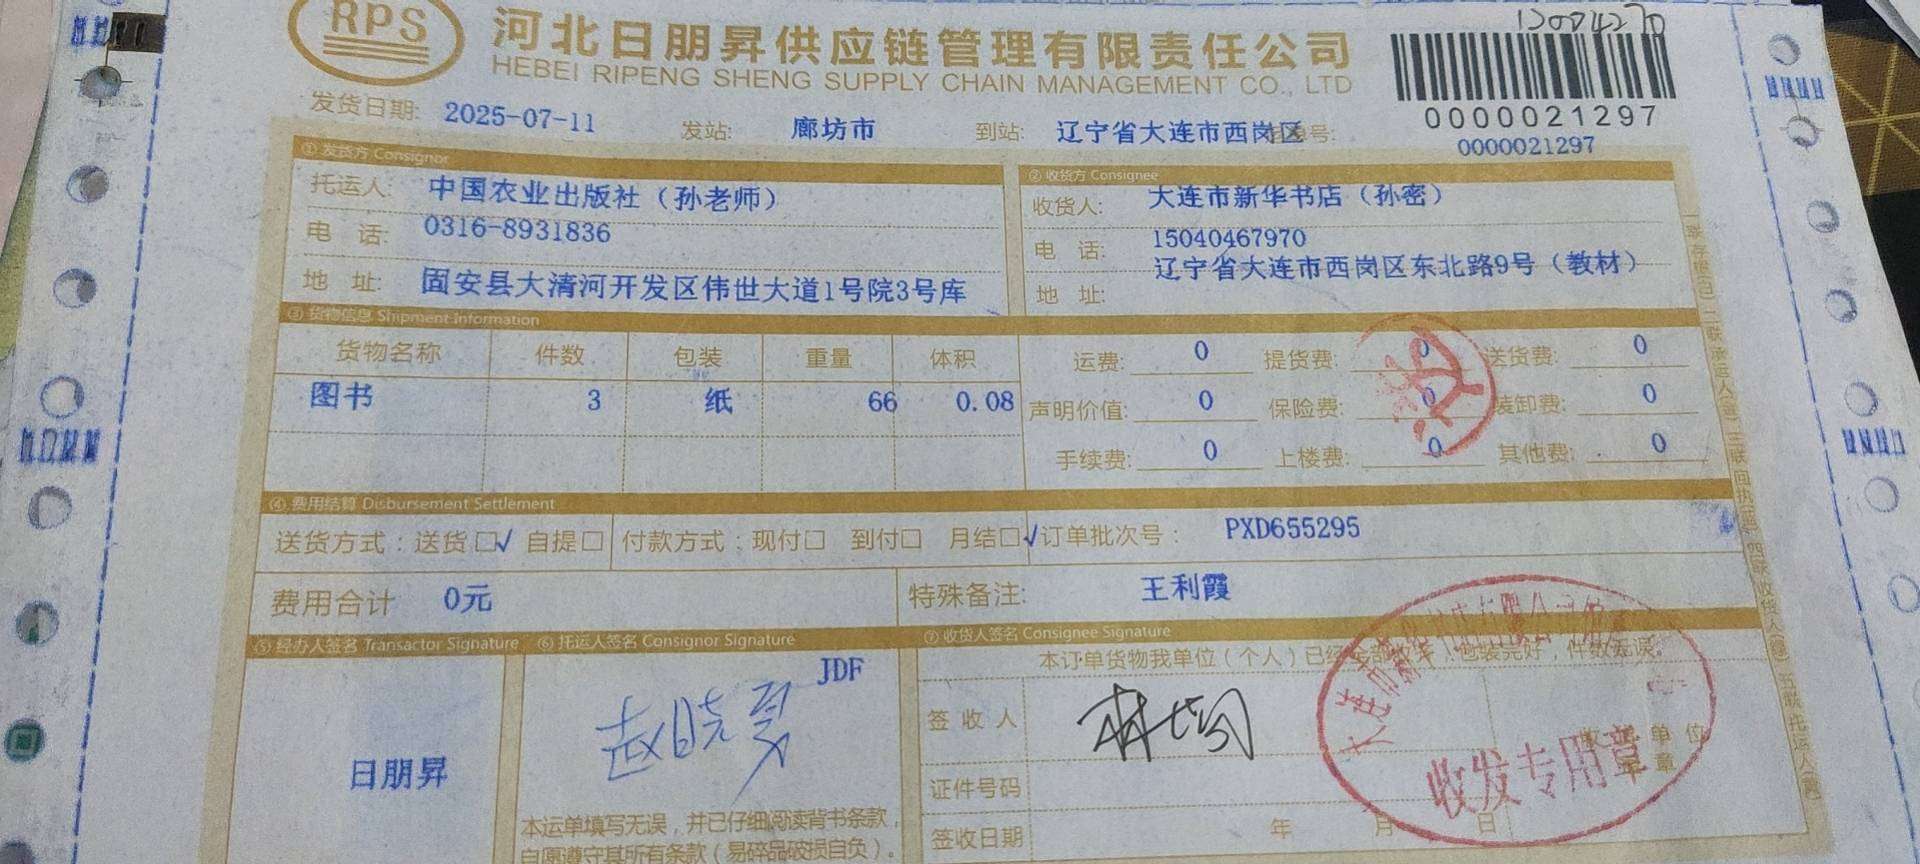 RPS
河北日朋昇供应链管理有限责任公司
HEBEI RIPENG SHENG SUPPLY CHAIN MANAGEMENT CO., LTD
0000021297
发货日期: 2025-07-11 发站: 廊坊市 到站: 辽宁省大连市西岗区 号:
0000021297
① 发货方 Consignor
托运人: 中国农业出版社（孙老师）
电 话: 0316-8931836
地 址: 固安县大清河开发区伟世大道1号院3号库
② 收货方 Consignee
收货人: 大连市新华书店（孙密）
电 话: 15040467970
地 址: 辽宁省大连市西岗区东北路9号（教材）
③ 货物信息 Shipment Information
货物名称 件数 包装 重量 体积
图书 3 纸 66 0.08
运费: 0 提货费: 0 送货费: 0
声明价值: 0 保险费: 0 装卸费: 0
手续费: 0 上楼费: 0 其他费: 0
④ 费用结算 Disbursement Settlement
送货方式：送货☐√ 自提☐ 付款方式：现付☐ 到付☐ 月结☐√ 订单批次号： PXD655295
费用合计 0元 特殊备注: 王利霞
⑤ 经办人签名 Transactor Signature
日朋昇
⑥ 托运人签名 Consignor Signature
JDF
赵晓夏
本运单填写无误，并已仔细阅读背书条款，
自愿遵守其所有条款（易碎品破损自负）。
⑦ 收货人签名 Consignee Signature
本订单货物我单位（个人）已经全部收到，包装完好，件数无误。
签 收 人
证件号码
签收日期 年 月 日
单 位
章
收发专用章